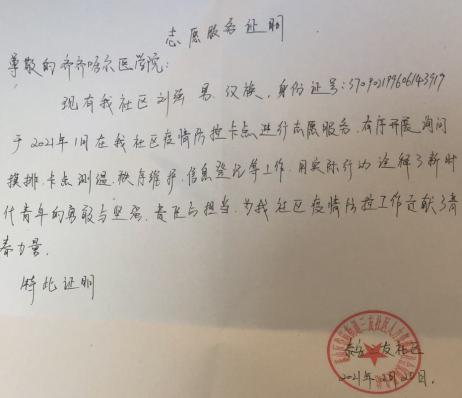 志愿服务证明
尊敬的齐齐哈尔医学院：
现有我社区刘强 男、汉族、身份证号：370902199606143917
于2021年1月在我社区疫情防控卡点进行志愿服务，有序开展询问
摸排、卡点测温、秩序维护、信息登记等工作，用实际行动诠释了新时
代青年的勇敢与坚强、责任与担当，为我社区疫情防控工作贡献了青
春力量。
特此证明
友社区
2021年 月20日.